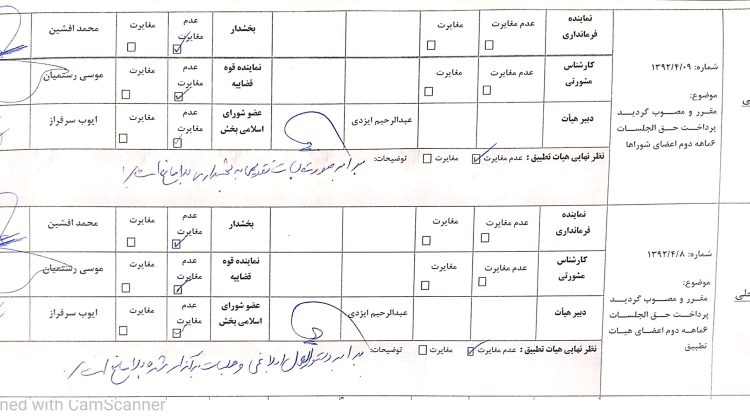 نماینده فرمانداری
عدم مغایرت
مغایرت
بخشدار
عدم مغایرت
مغایرت
محمد افشین
شماره: ۱۳۹۲/۴/۰۹
موضوع:
مقرر و مصوب گردید
پرداخت حق الجلسات
۶ماهه دوم اعضای شوراها
کارشناس مشورتی
عدم مغایرت
مغایرت
نماینده قوه قضاییه
عدم مغایرت
مغایرت
موسی رستمیان
دبیر هیأت
عبدالرحیم ایزدی
عضو شورای اسلامی بخش
عدم مغایرت
مغایرت
ایوب سرفراز
نظر نهایی هیات تطبیق : عدم مغایرت مغایرت توضیحات: برابر صورت جلسات تقدیمی به بخشداری بلامانع است
نماینده فرمانداری
عدم مغایرت
مغایرت
بخشدار
عدم مغایرت
مغایرت
محمد افشین
شماره: ۱۳۹۲/۴/۸
موضوع:
مقرر و مصوب گردید
پرداخت حق الجلسات
۶ماهه دوم اعضای هیات
تطبیق
کارشناس مشورتی
عدم مغایرت
مغایرت
نماینده قوه قضاییه
عدم مغایرت
مغایرت
موسی رستمیان
دبیر هیأت
عبدالرحیم ایزدی
عضو شورای اسلامی بخش
عدم مغایرت
مغایرت
ایوب سرفراز
نظر نهایی هیات تطبیق : عدم مغایرت مغایرت توضیحات: برابر دستورالعمل ابلاغی و جلسات برگزار شده بلامانع است
ned with CamScanner